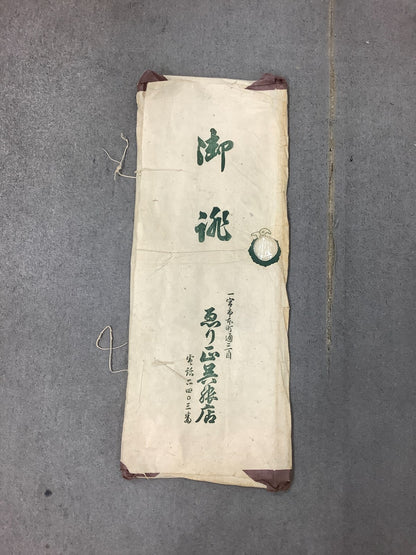 御誂
一宮市本町通三丁目
ゑり正呉服店
電話二四〇三番